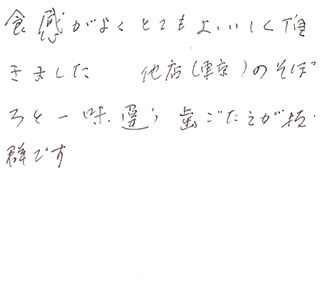 食感がよくとてもよいしく頂
きました　他店(東京)のそば
ろと一味違う歯ごたえが抜
群です